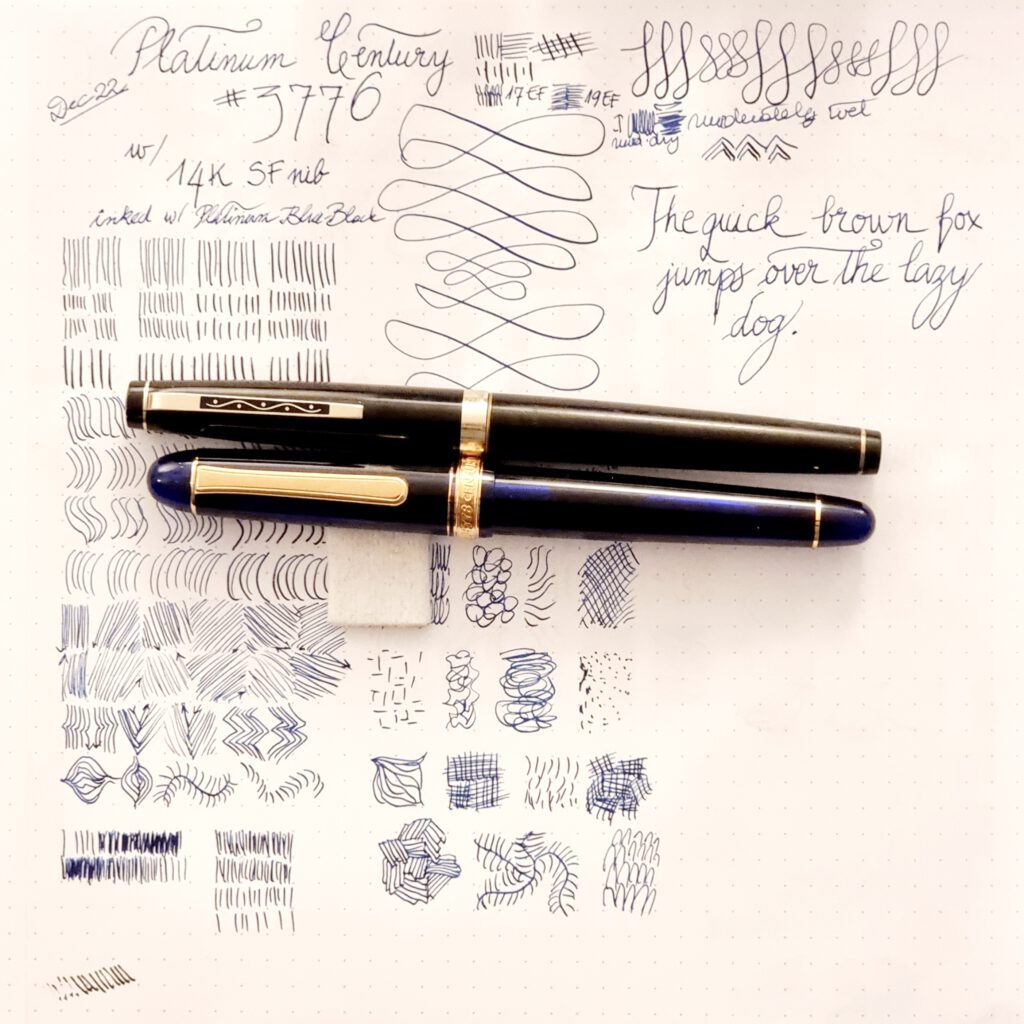 Platinum Century
Dec-22
#3776
w/
14K SF nib
inked w/ Platinum Blue Black
17EF 19EF
moderately wet
The quick brown fox
jumps over the lazy
dog.